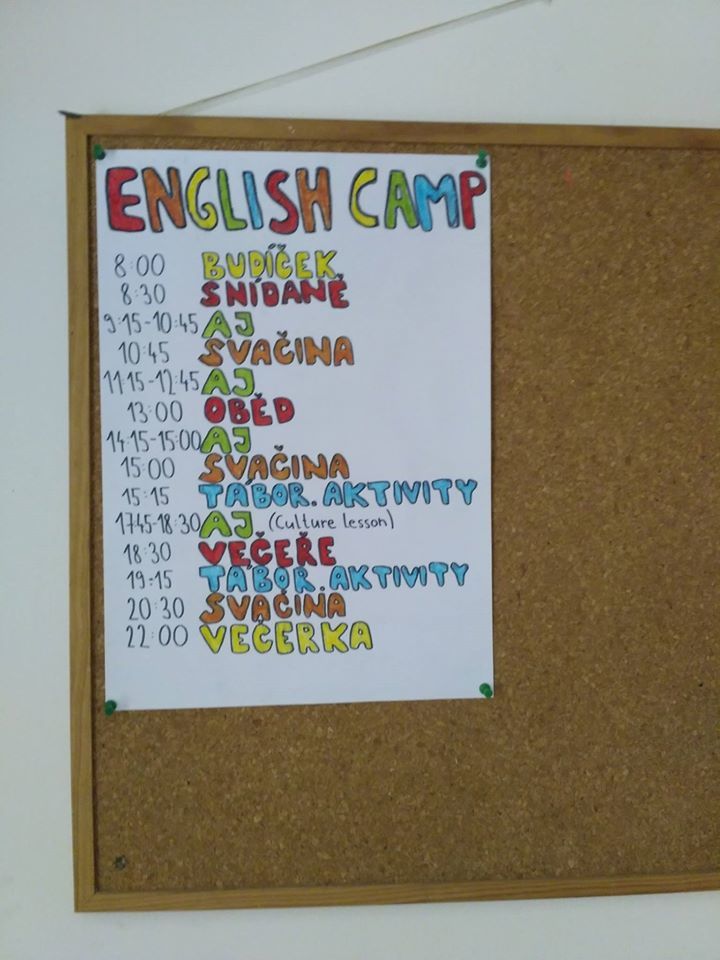 ENGLISH CAMP
8:00 BUDÍČEK
8:30 SNÍDANĚ
9:15-10:45 AJ
10:45 SVAČINA
11:15-12:45 AJ
13:00 OBĚD
14:15-15:00 AJ
15:00 SVAČINA
15:15 TÁBOR. AKTIVITY
17:45-18:30 AJ (Culture lesson)
18:30 VEČEŘE
19:15 TÁBOR. AKTIVITY
20:30 SVAČINA
22:00 VEČERKA